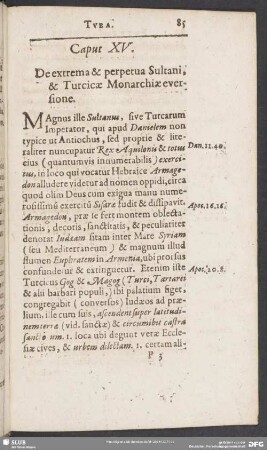 TVBA. 85
Caput XV.
De extrema & perpetua Sultani,
& Turcicæ Monarchiæ ever-
sione.
MAgnus ille Sultanus, sive Turcarum
Imperator, qui apud Danielem non
typice ut Antiochus, sed proprie & lite-
raliter nuncupatur Rex Aquilonis & totus
Dan. 11. 40.
eius (quantumvis innumerabilis) exerci-
tus, in loco qui vocatur Hebraice Armage-
don alludere videtur ad nomen oppidi, circa
quod olim Deus cum exigua manu nume-
rosissimũ exercitũ Sisaræ fudit & dissipavit.
Apoc. 16. 16.
Armagedon, præ se fert montem oblecta-
tionis, decoris, sanctitatis, & peculiariter
denotat Iudæam sitam inter Mare Syriam
(seu Mediterraneum) & magnum illud
flumen Euphratem in Armenia, ubi pro sus
confundetur & extinguetur. Etenim iste
Apoc. 20. 8.
Turcicus Gog & Magog (Turci, Tartarei
& alii barbari populi,) ibi palatium figet,
congregabit (conversos) Iudæos ad præ-
lium. ille cum suis, ascendens super latitudi-
nem terræ (vid. sanctæ) & circumibit castra
sanctorum. i. loca ubi degunt veræ Eccle-
siæ cives, & urbem dilectam. i. certam ali-
P 3